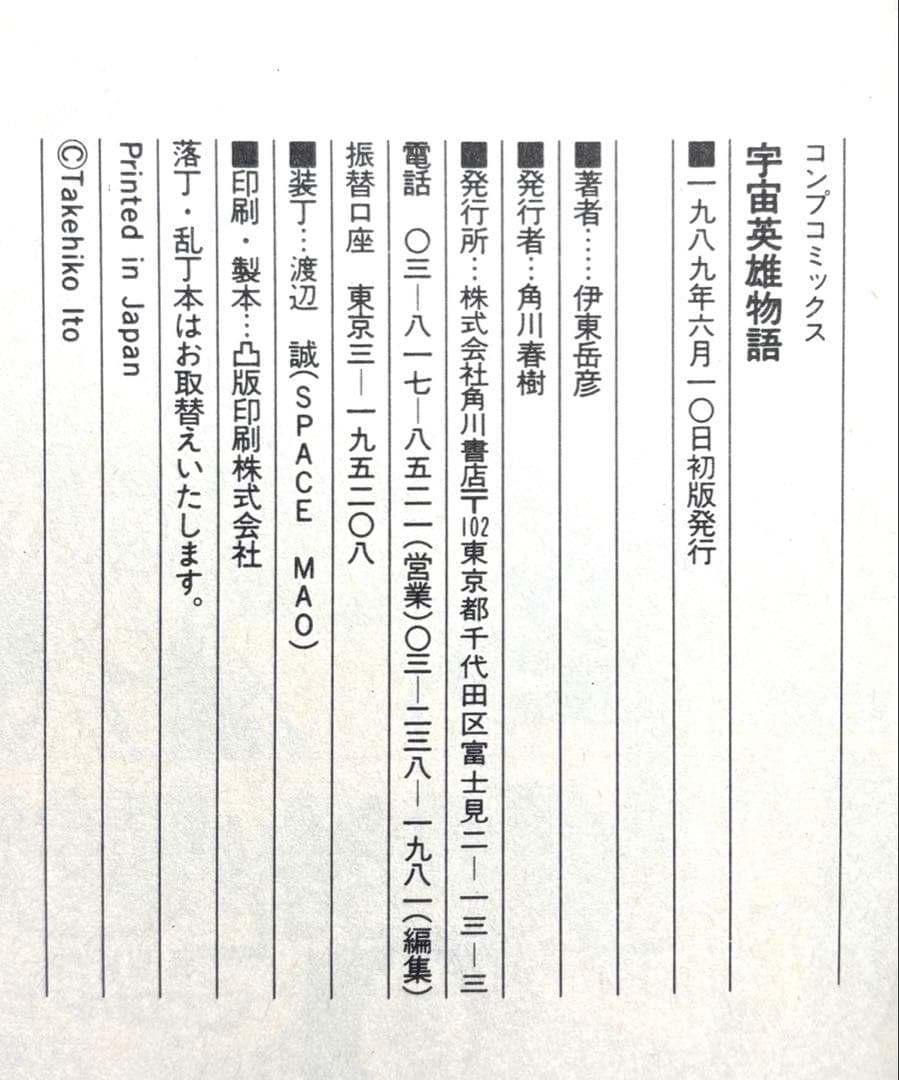 コンプコミックス
宇宙英雄物語
■一九八九年六月一〇日初版発行
■著者……伊東岳彦
■発行者…角川春樹
■発行所…株式会社角川書店〒102東京都千代田区富士見二―一三―三
電話　〇三―八一七―八五二一(営業)〇三―二三八―一九八一(編集)
振替口座　東京三―一九五二〇八
■装丁…渡辺　誠(SPACE　MAO)
■印刷・製本…凸版印刷株式会社
落丁・乱丁本はお取替えいたします。
Printed in Japan
©Takehiko Ito